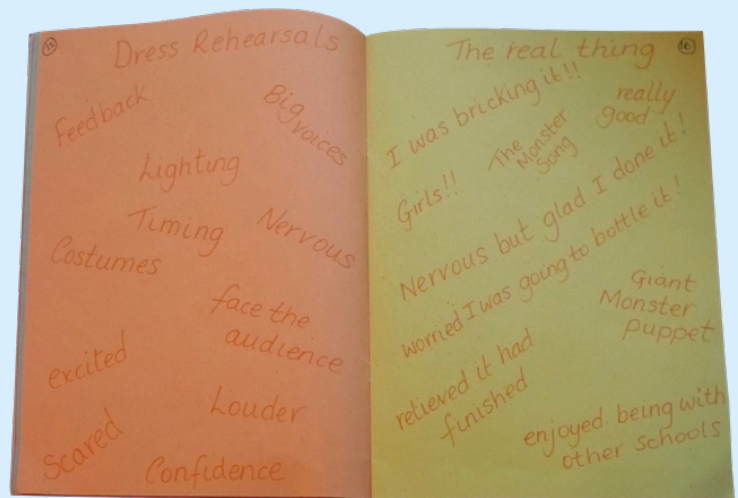 15
Dress Rehearsals
Feedback
Big
voices
Lighting
Timing
Nervous
Costumes
face the
audience
excited
Louder
Scared
Confidence
16
The real thing
I was bricking it!!
really
good
The
Monster
Song
Girls!!
Nervous but glad I done it!
worried I was going to bottle it!
Giant
Monster
puppet
relieved it had
finished
enjoyed being with
other schools